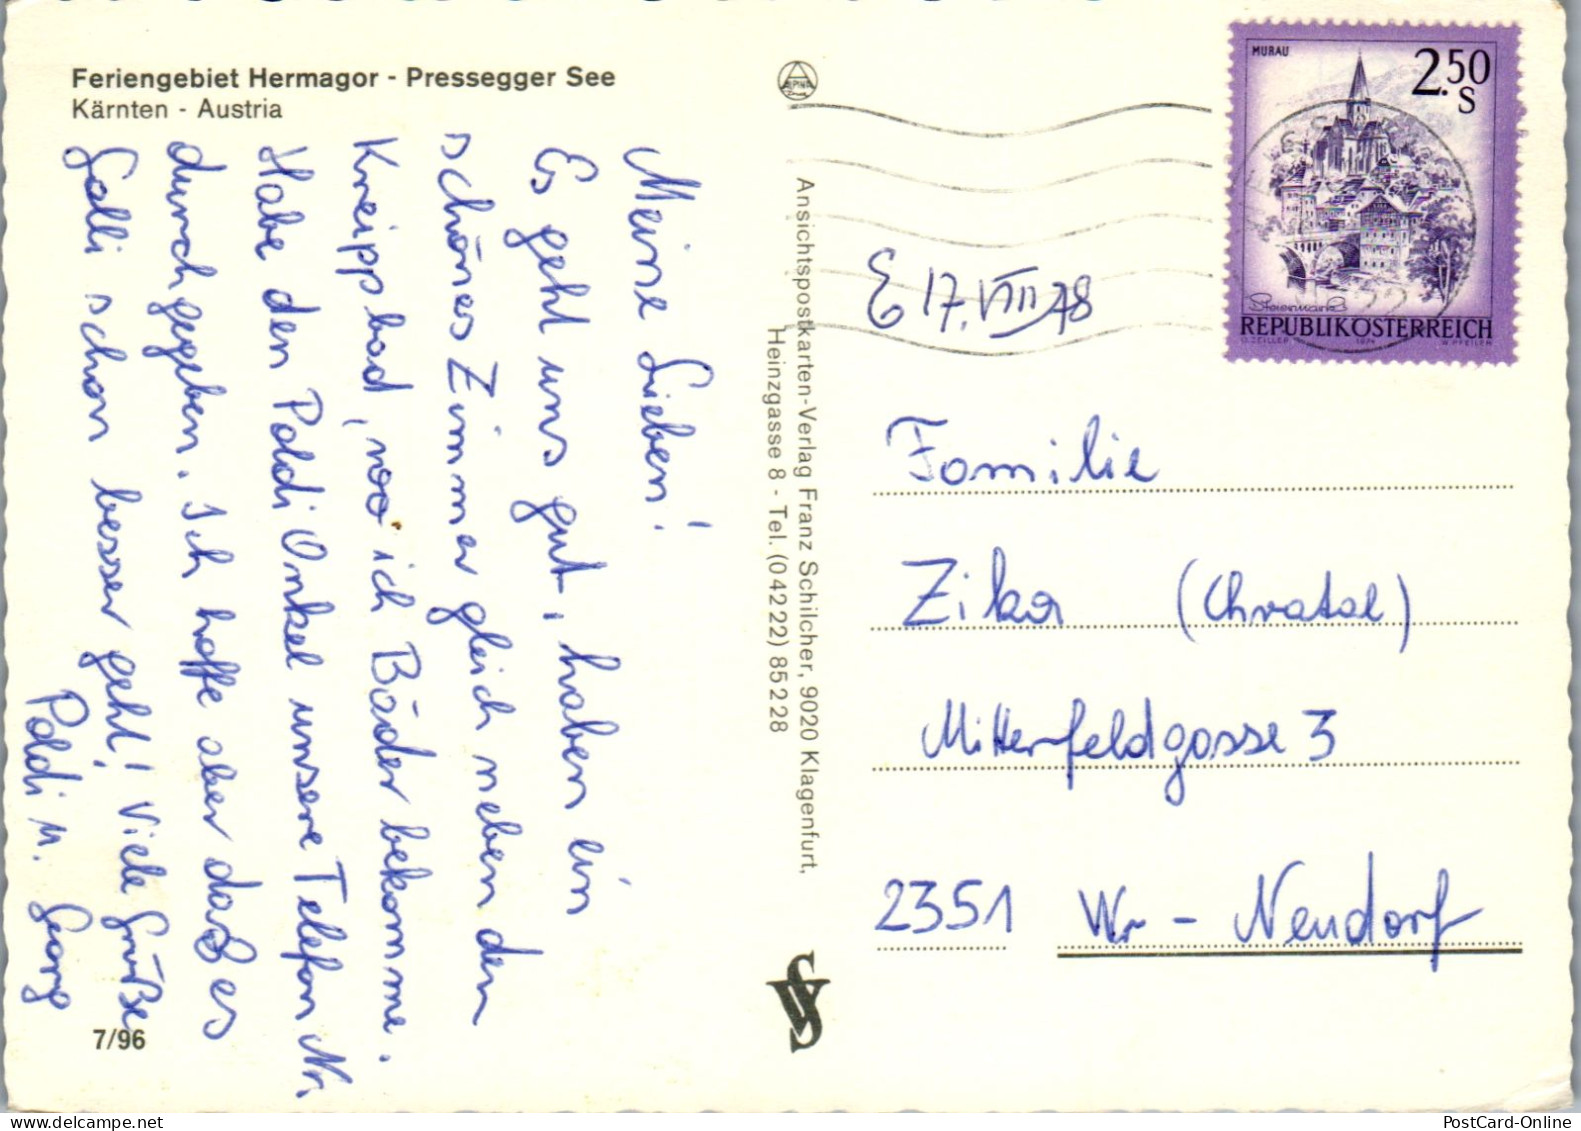 Feriengebiet Hermagor - Pressegger See
Kärnten - Austria
Meine Lieben!
Es geht uns gut, haben ein
schönes Zimmer gleich neben dem
Kneippbad, wo ich Bäder bekomme.
Habe den Poldi Onkel unsere Telefon Nr.
durchgegeben. Ich hoffe aber daß es
Galli schon besser geht! Viele Grüße
Poldi u. Georg
7/96
Ansichtspostkarten-Verlag Franz Schilcher, 9020 Klagenfurt,
Heinzgasse 8 - Tel. (04222) 85228
MURAU
2.50
S
Steiermark
REPUBLIK ÖSTERREICH
O. ZEILLER 1974 W. PFEILER
E 17. VIII 78
Familie
Zika (Chratal)
Mitterfeldgasse 3
2351 Wr - Neudorf